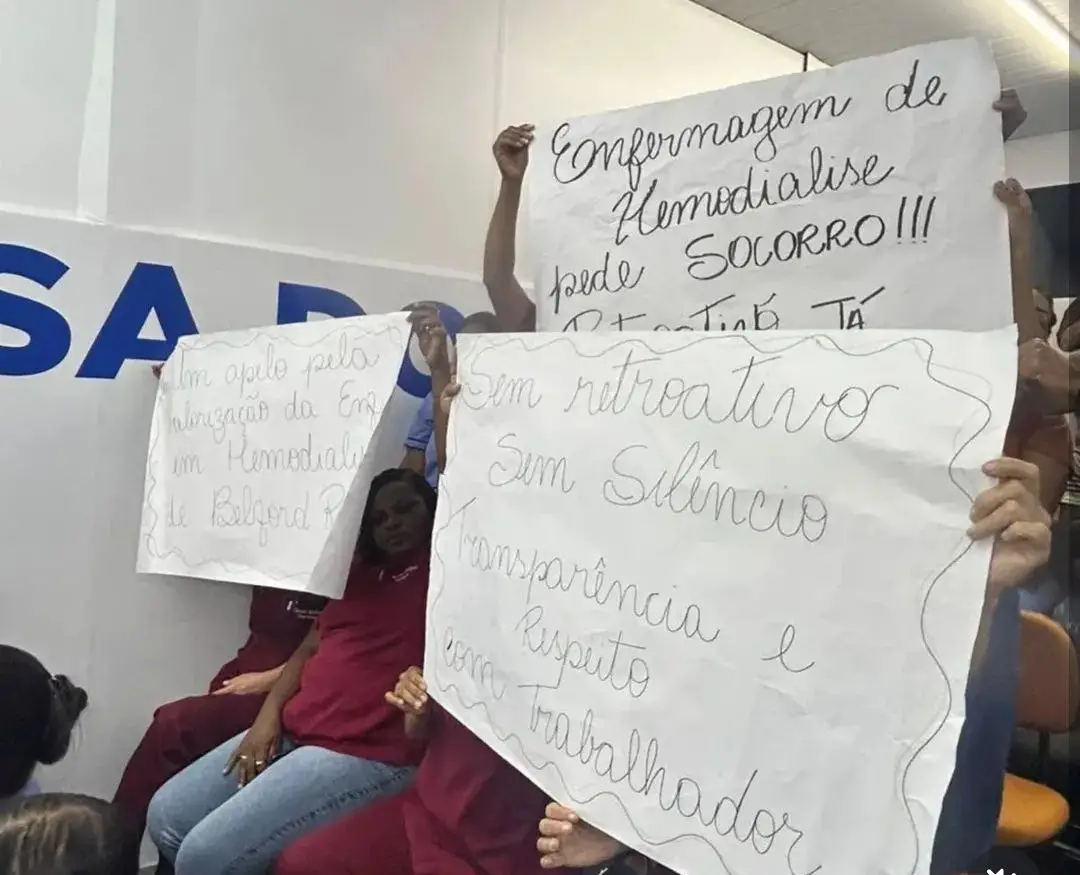 SA DO
Enfermagem de
Hemodialise
pede SOCORRO!!!
TÁ
Um apelo pela
valorização da Enf
em Hemodialis
de Belford R
Sem retroativo
Sem Silêncio
Transparência e
Respeito
com Trabalhador